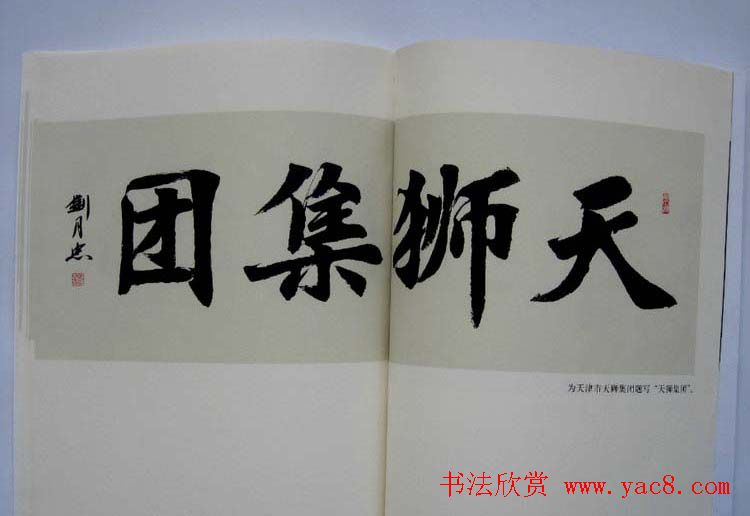 天狮集团
劉月忠
为天津市天狮集团题写“天狮集团”。
书法欣赏 www.yac8.com